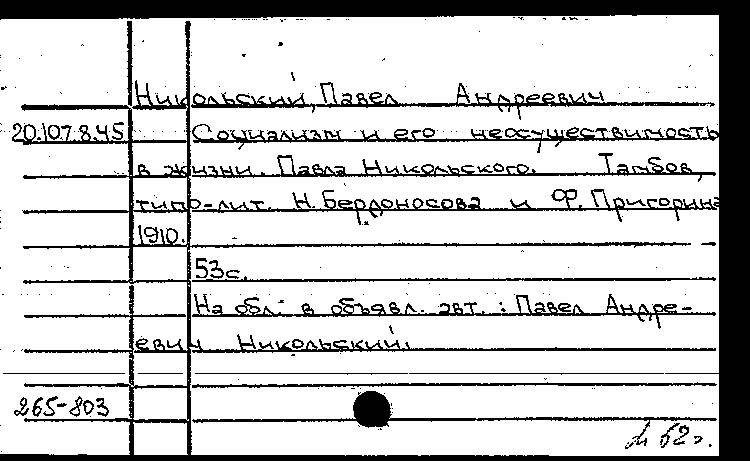 Никольский, Павел Андреевич
20.107.8.45 Социализм и его неосуществимость
в жизни. Павла Никольского. Тамбов,
типо-лит. Н. Бердоносова и Ф. Пригорина
1910.
53 с.
На обл. в объявл. авт.: Павел Андре-
евич Никольский.
265-803
62 г.